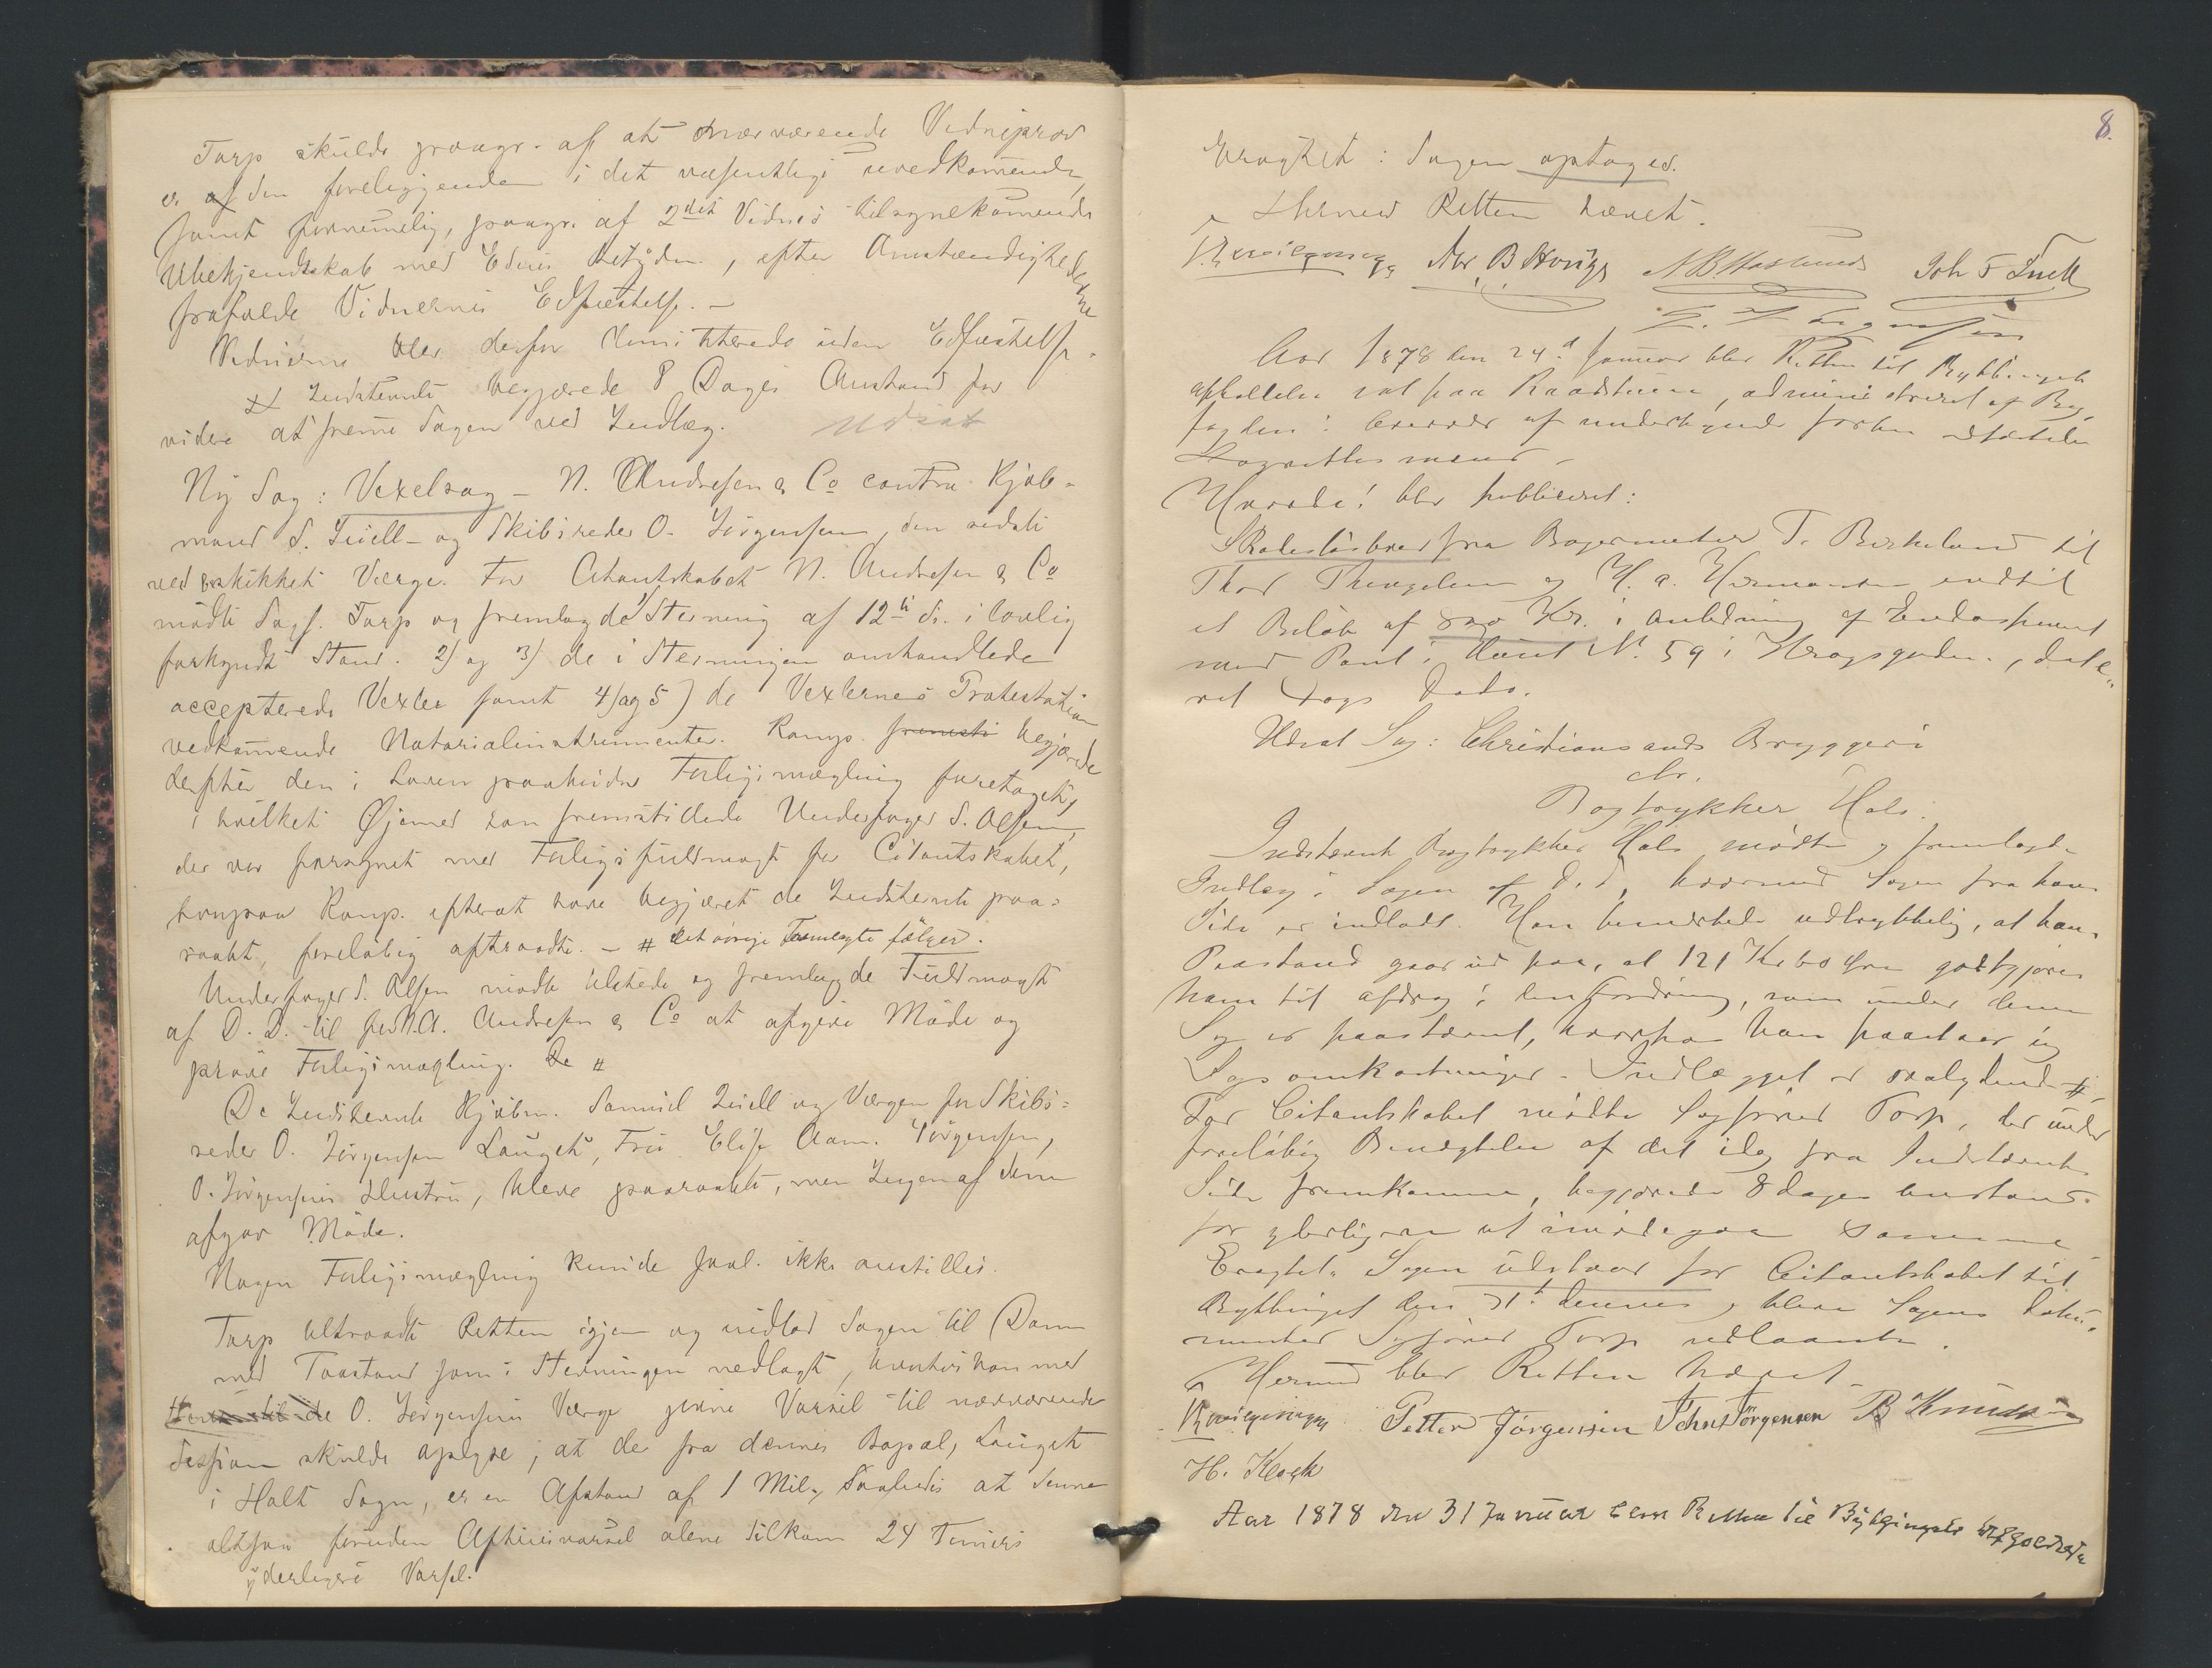 Torp skulde paagr. af at nærværende Vidneprov
er den foreliggende i det væsentlige uvedkommende,
samt fornemmelig, paagr. af 2det Vidnes tilsynekommende
Ubekjendtskab med Edens Betydn., efter Omstændighederne
frafalde Vidnernes Edfæstelse. –
Vidnerne blev derfor dimitterede uden Edfæstelse.
Indstevnte begjærede 8 Dages Anstand for
videre at fremme Sagen ved Indlæg. Udsat
Ny Sag: Vexelsag – N. A. Andresen & Co contra Kjøb-
mand S. Zuell og Skibsreder O. Jörgensen, den sidste
ved beskikket Værge. For Citantskabet N. A. Andresen & Co
mødte Sagf. Torp og fremlagde 1) Stevning af 12te ds. i lovlig
forkyndt Stand. 2) og 3) de i Stevningen omhandlede
accepterede Vexler samt 4) og 5) de Vexlernes Protestation
vedkommende Notarialinstrumenter. Komp. begjærede
derefter den i Loven paabudne Forligsmægling foretaget,
i hvilket Øjemed han fremstillede Underfoged S. Olsen,
der var forsynet med Forligsfuldmagt for Citantskabet,
hvorpaa Komp. efterat have begjæret de Indstevnte paa-
raabt, foreløbig aftraadte. – # det övrige Fremlagte fölger.
Underfoged S. Olsen mødte tilstede og fremlagde Fuldmagt
af D. D. til for N. A. Andresen & Co at afgive Møde og
prøve Forligsmægling. De #
De Indstevnte Kjøbm. Samuel Zuell og Værgen for Skibs-
reder O. Jörgensen Lauget, Fru Elise Aam. Jörgensen,
O. Jörgensens Hustru, bleve paaraabte, men Ingen af dem
afgav Møde.
Nogen Forligsmægling kunde saal. ikke anstilles.
Torp tiltraadte Retten igjen og indlod Sagen til Dom
med Paastand som i Stevningen nedlagt, hvorhos han med
Hensyn til det O. Jörgensens Værge givne Varsel til nærværende
Session skulde oplyse, at der fra dennes Bopæl, Lauget
i Holt Sogn, er en Afstand af 1 Mil, saaledes at denne
altsaa foruden Aftenvarsel alene tilkom 24 Timers
yderligere Varsel.
8.
Eragtet: Sagen optages.
Hermed Retten hævet.
Abr. B Hovigs N B Haslund Joh F Tuell
Aar 1878 den 24d Januar blev Retten til Bythingets
afholdelse sat paa Raadstuen, administreret af By-
fogden i Overvær af undertegnede forhen edfæstede
Lagrettesmænd –
Hvorda! blev publiceret:
Skadesløsbrev fra Bagermester T. Birkeland til
Thor Thengelsen og H. A. Hermansen indtil
et Beløb af 800 Kr. i anledning af Endossement
med Pant i Huus No. 59 i Kragsgaden, date-
ret Dags Dato.
Udsat Sag: Christiansands Bryggeri
ctr.
Bogtrykker Hals.
Indstevnte Bogtrykker Hals mødte og fremlagde
Indlæg i Sagen af D. D, hvormed Sagen fra hans
Side er indladt. Han bemærkede udtrykkelig, at hans
Paastand gaar ud paa, at 121 Kr 60 Øre godtgjøres
ham til afdrag i den fordring, som under denne
Sag er paastævnt, hvorhos han paastaar sig
Sagsomkostninger. Indlægget er saalydende #.
For Citantskabet mødte Sagfører Torp, der under
foreløbig Benægtelse af det idag fra Indstævntes
Side fremkomne, begjærede 8 dages anstand
for yderligere at imødegaa samme.
Eragtet. Sagen udstaar for Citantskabet til
Bythinget den 31t dennes og bleve Sagens doku-
menter Sagfører Torp udlaante.
Hermed blev Retten hævet –
Petter Jörgensen John Jörgensen B Knudsen
H. Klock
Aar 1878 den 31 Januar blev Retten til Bythingets afholdelse